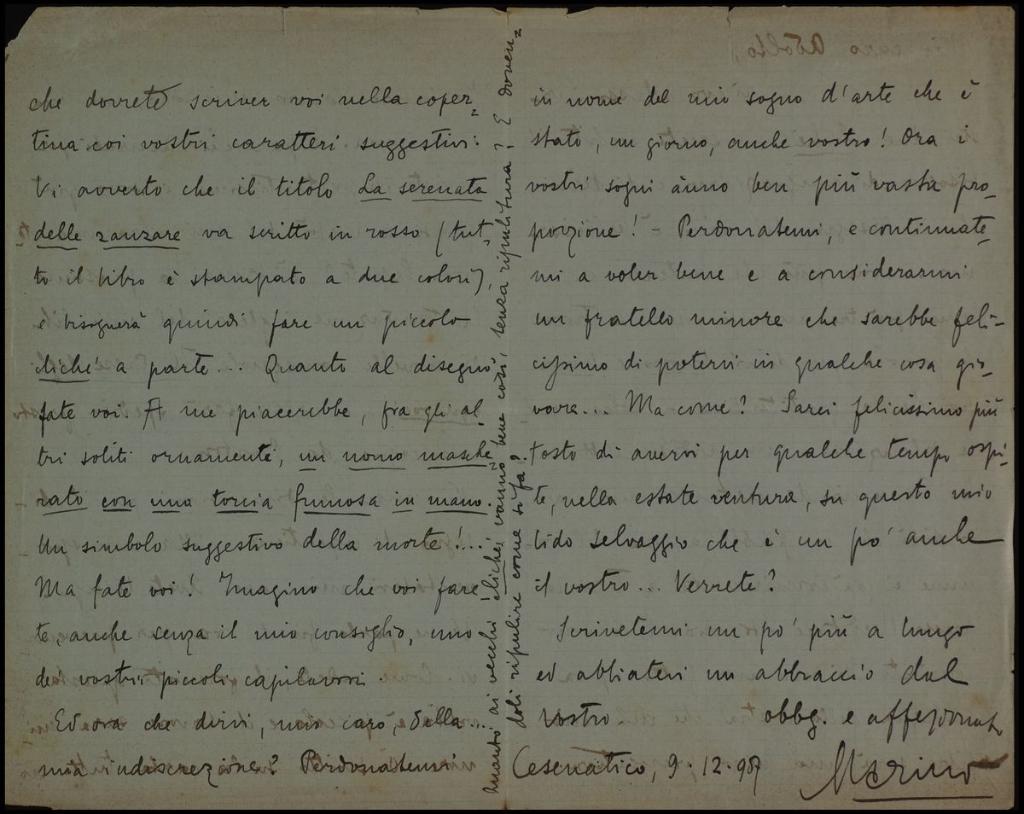 che dovrete scriver voi nella coper=
tina coi vostri caratteri suggestivi.
Vi avverto che il titolo La serenata
delle zanzare va scritto in rosso (tut=
to il libro è stampato a due colori),
e bisognerà quindi fare un piccolo
cliché a parte... Quanto al disegno
fate voi. A me piacerebbe, fra gli al=
tri soliti ornamenti, un uomo masche=
rato con una torcia fumosa in mano.
Un simbolo suggestivo della morte!...
Ma fate voi! Imagino che voi fare
te, anche senza il mio consiglio, uno
de' vostri piccoli capilavori.
Ed ora che dirvi, mio caro, della...
mia indiscrezione? Perdonatemi
in nome del mio sogno d'arte che è
stato, un giorno, anche vostro! Ora i
vostri sogni ànno ben più vasta pro=
porzione! - Perdonatemi, e continuate=
mi a voler bene e a considerarmi
un fratello minore che sarebbe feli=
cissimo di potervi in qualche cosa gio=
vare... Ma come? Sarei felicissimo piu
tosto di avervi per qualche tempo ospi=
te, nella estate ventura, su questo mio
lido selvaggio che è un po' anche
il vostro... Verrete?
Scrivetemi un po' più a lungo
ed abbiatevi un abbraccio dal
vostro obbg. e affezionat
Marino
Cesenatico, 9.12.907
Quanto ai vecchi cliché, vanno bene così, senza ripulitura? E doven=
doli ripulire come si fa?
caro Adolfo,